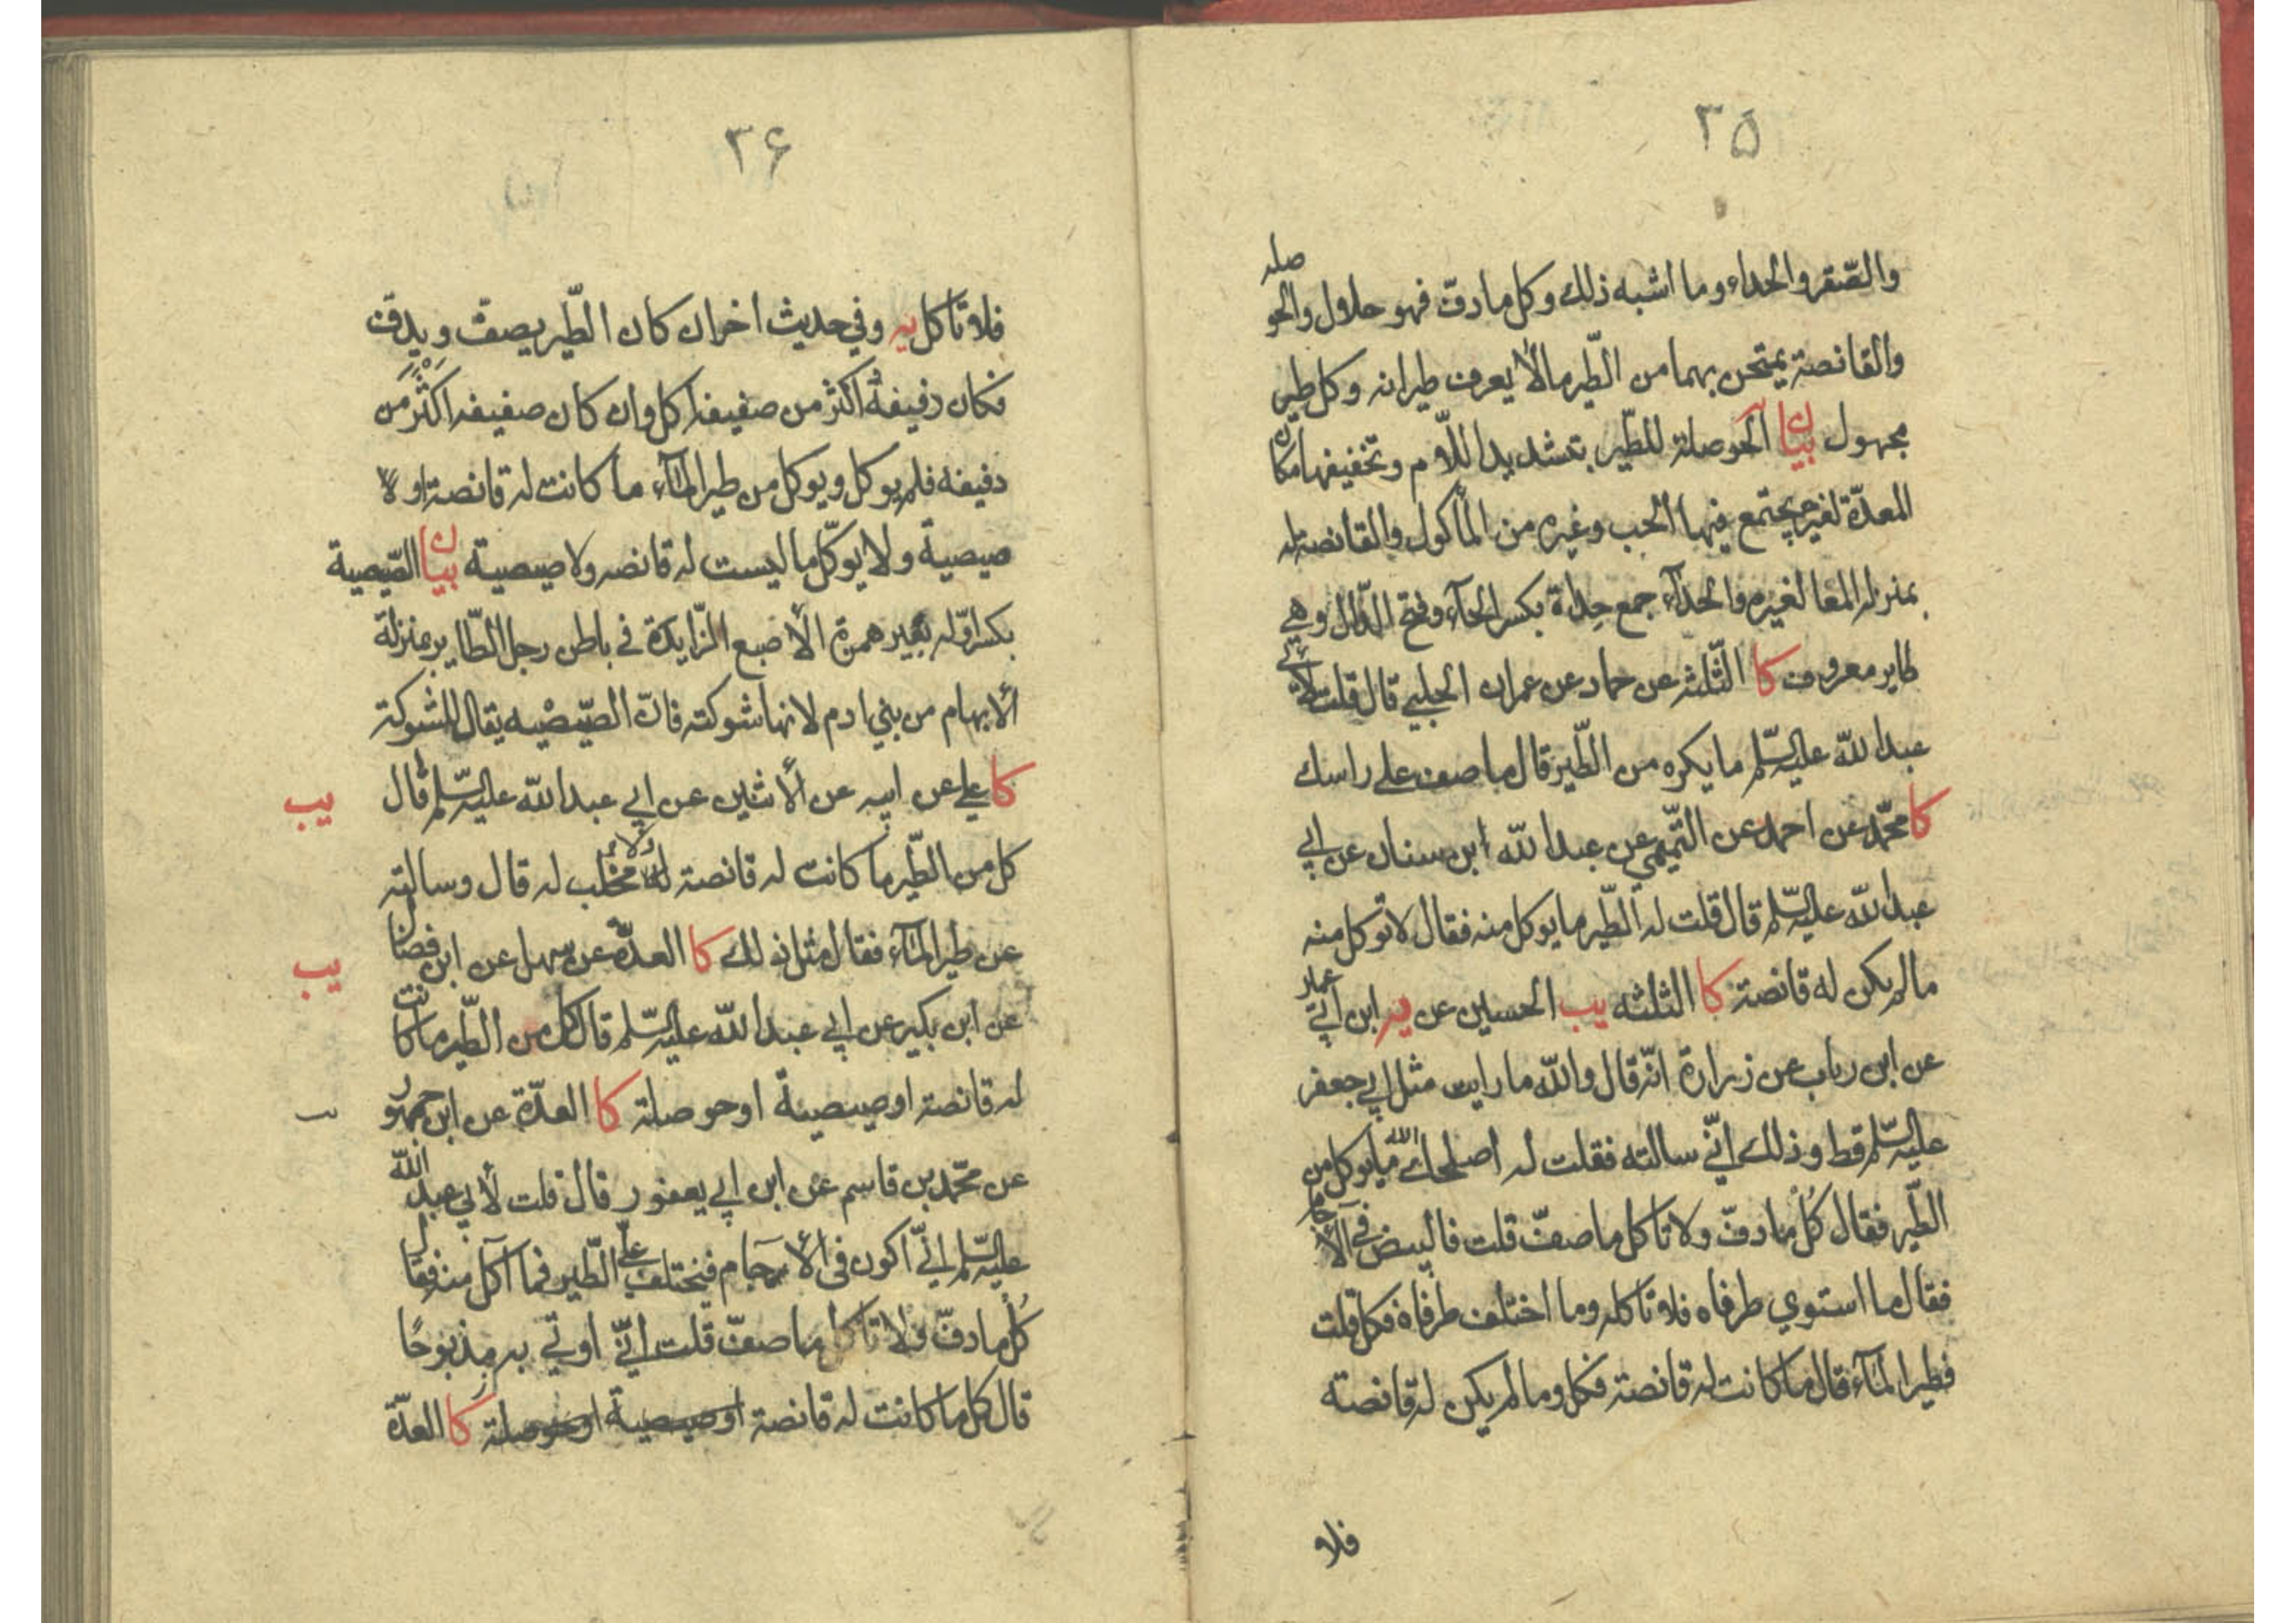 ٣۵
والصّقر والحداء وما اشبه ذلك وكل ما دفّ فهو حلال والحو
صلہ
والقانصة يمتحن بهما من الطّير مالا يعرف طيرانه وكل طير
مجهول بيان الحوصلة للطّير بتشديد اللّام وتخفيفها مكان
المعدّة لغيره يجتمع فيها الحب وغيره من المأكول والقانصة له
بمنزله المعا لغيره والحدآء جمع حِداة بكسر الحآء وفتح الدّال وهي
طاير معروف كا الثّلثة عن حماد عن عمران الحلبي قال قلت لابي
عبد الله عليه السّلم ما يكره من الطّير قال ما صف على راسك
كا محمّد عن احمد عن التّميمي عن عبد الله ابن سنان عن ابي
عبد الله عليه السّلم قال قلت له الطّير ما يوكل منه فقال لا توكل منه
مالم يكن له قانصة كا الثلثه يب الحسين عن يه ابن أبي
عمير
عن ابن رياب عن زرارة انّه قال والله ما رايت مثل ابي جعفر
عليه السّلم قط وذلك انّي سالته فقلت له اصلحك الله ما يوكل من
الطّير فقال كُل ما دفّ ولا تاكل ما صفّ قلت فالبيض في الآ
جام
فقال ما استوي طرفاه فلا تاكله وما اختلف طرفاه فكل قلت
فطير المآء قال ما كانت له قانصة فكل وما لم يكن له قانصة
فلا
٣۶
فلا تاكل يه وفي حديث اخر ان كان الطّير يصفّ ويدفّ
فكان دفيفهُ اكثر من صفيفه اكل وان كان صفيفه اكثر من
دفيفه فلم يوكل ويوكل من طير المآء ما كانت له قانصة او
صيصية ولا يوكّل ما ليست له قانصه ولا صيصية بيان الصّيصية
بكسر اوّله بغير همزة الأصبع الزّايدة في باطن رجل الطّاير بمنزلة
الابهام من بني ادم لانها شوكته فانّ الصّيصْيه يقال للشوكة
كا علي عن ابيه عن الأثنين عن ابي عبد الله عليه السّلم قال
يب
كل من الطّير ما كانت له قانصة ولا مخلب له قال وسالته
عن طير المآء فقال مثل ذلك كا العدّة عن سهل عن ابن فضال
يب
عن ابن بكير عن ابي عبد الله عليه السّلم قال كل من الطّير ما كانت
له قانصة او صيصية او حوصلة كا العدّة عن ابن جمهور
عن محمّد بن قاسم عن ابن ابي يعفور قال قلت لأبي عبد الله
عليه السّلم انّي اكون في الأجام فيختلف عليّ الطّير فما آكل منه فقال
كُل ما دفّ ولا تاكل ما صفّ قلت انّي اوتي به مذبوحًا
قال كل ما كانت له قانصة او صيصية او حوصلة كا العدّة